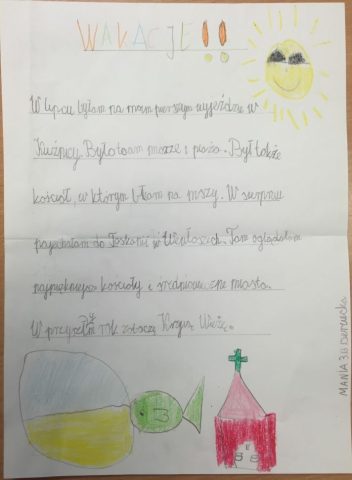 WAKACJE !!
W lipcu byłam na moim pierwszym wyjeździe w
Kuźnicy. Było tam morze i plaża. Był także
kościół, w którym błam na mszy. W sierpniu
pojechałam do Toskani w Włoszech. Tam oglądałam
najpiękniejsze kościoły i średniowieczne miasta.
W rok zobaczę Krzywą Wieżę.
MANIA